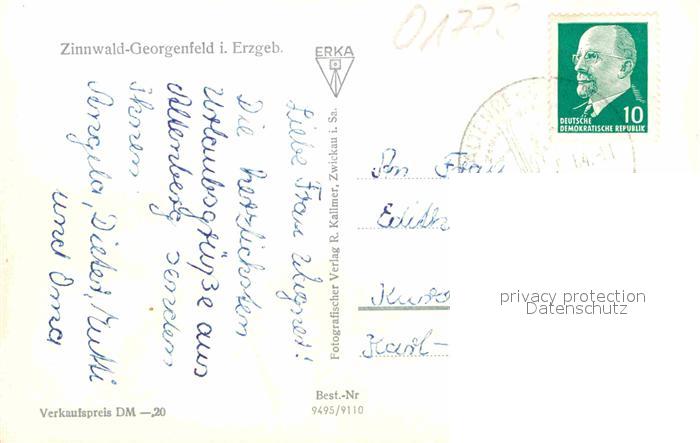 Zinnwald-Georgenfeld i. Erzgeb.
ERKA
Liebe Frau Wagner!
Die herzlichsten
Urlaubsgrüße aus
Altenberg senden
ihnen
Angela, Dieter, Mutti
und Oma
Fotografischer Verlag R. Kallmer, Zwickau i. Sa.
10
DEUTSCHE
DEMOKRATISCHE REPUBLIK
An Frau
Edith
Karl-
privacy protection
Datenschutz
Verkaufspreis DM —,20
Best.-Nr
9495/9110